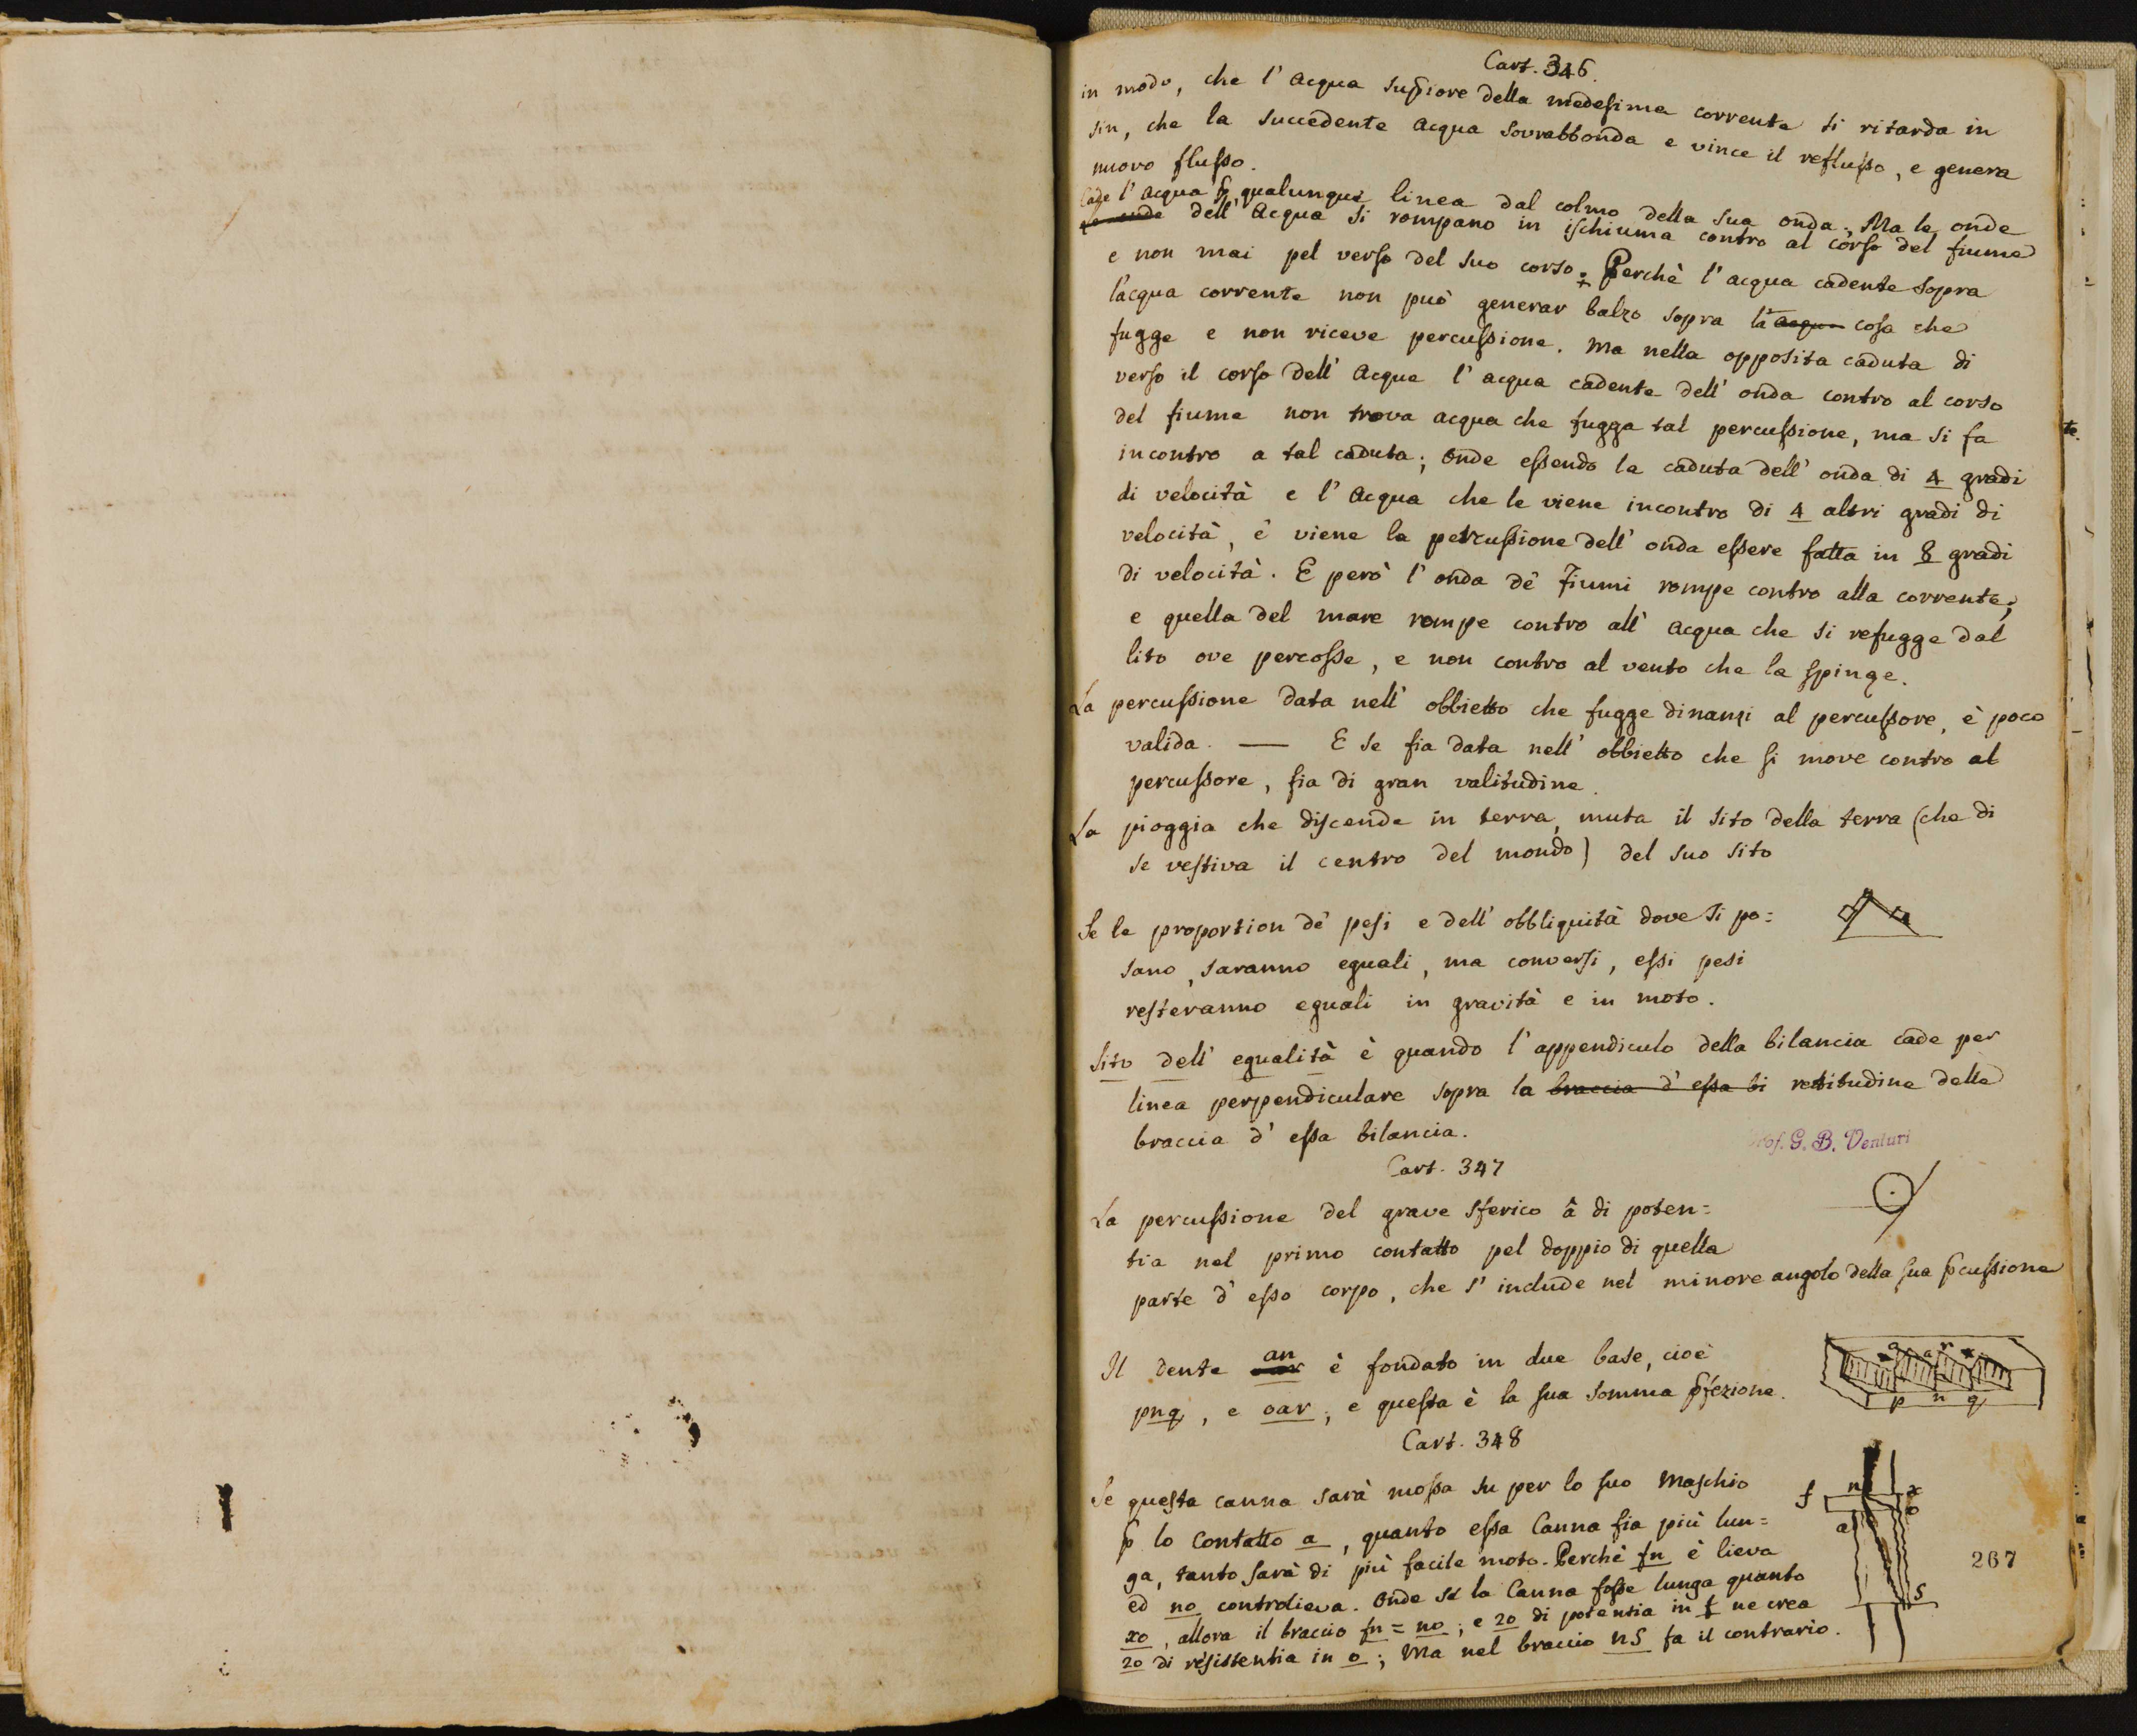 Cart. 346.
in modo, che l' acqua sup̄iore della medesima corrente si ritarda in
sin, che la succedente acqua sovrabbonda e vince il reflusso, e genera
nuovo flusso.
Cade l' acqua p̄ qualunque linea dal colmo della sua onda. Ma le onde
dell' Acqua si rompano in ischiuma contro al corso del fiume
e non mai pel verso del suo corso. Perchè l' acqua cadente sopra
l'acqua corrente non può generar balzo sopra la acqua cosa che
fugge e non riceve percussione. Ma nella opposita caduta di
verso il corso dell' Acqua l' acqua cadente dell' onda contro al corso
del fiume non trova acqua che fugga tal percussione, ma si fa
incontro a tal caduta; onde essendo la caduta dell' onda di 4 gradi
di velocità e l' Acqua che le viene incontro di 4 altri gradi di
velocità, e' viene la percussione dell' onda essere fatta in 8 gradi
di velocità. E però l' onda de' Fiumi rompe contro alla corrente;
e quella del mare rompe contro all' acqua che si refugge dal
lito ove percosse, e non contro al vento che la spinge.
La percussione data nell' obbietto che fugge dinanzi al percussore, è poco
valida. — E se fia data nell' obbietto che si move contro al
percussore, fia di gran valitudine.
La pioggia che discende in terra, muta il sito della terra (che di
se vestiva il centro del mondo) del suo sito
Se le proportion de' pesi e dell' obbliquità dove si po=
sano, saranno eguali, ma conversi, essi pesi
resteranno eguali in gravità e in moto.
Sito dell' egualità è quando l' appendiculo della bilancia cade per
linea perpendiculare sopra la braccia d' essa bi rettitudine delle
braccia d' essa bilancia.
Prof. G. B. Venturi
Cart. 347
La percussione del grave sferico â di poten=
tia nel primo contatto pel doppio di quella
parte d' esso corpo, che s' include nel minore angolo della sua p̄cussione
Il dente an è fondato in due base, cioè
q a r
pnq, e oar; e questa è la sua somma p̄fezione.
p n q
Cart. 348
Se questa canna sarà mossa su per lo suo Maschio
f n x
p̄ lo Contatto a, quanto essa Canna fia più lun=
a o
ga, tanto sarà di più facile moto. Perchè fn è lieva
267
ed no controlieva. Onde se la Canna fosse lunga quanto
S
xo, allora il braccio fn = no; e 20 di potentia in f ne crea
20 di resistentia in o; Ma nel braccio nS fa il contrario.